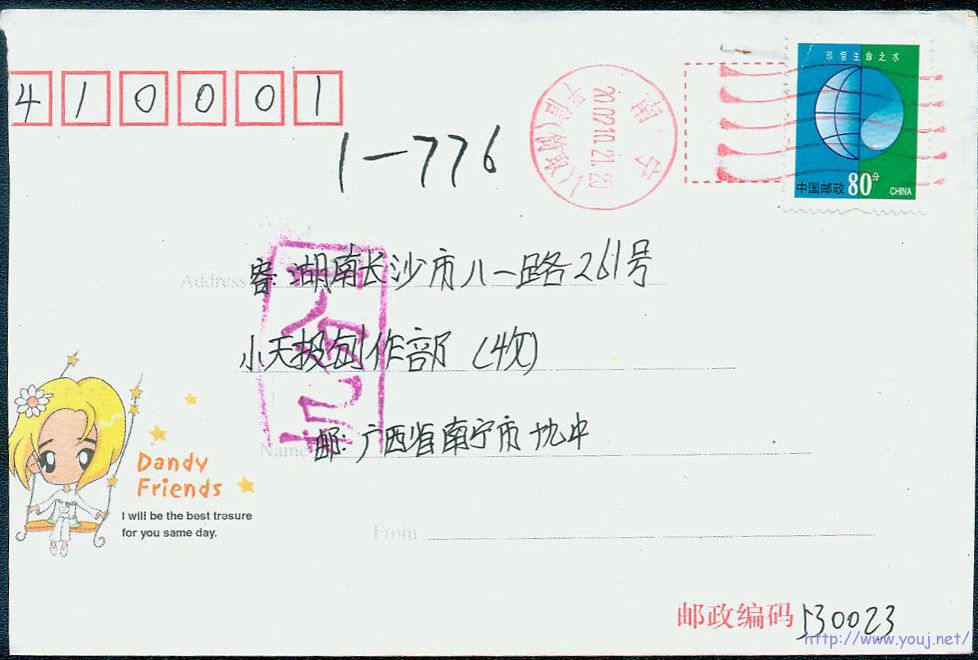 珍惜生命之水
中国邮政 80分 CHINA
410001
1-776
南宁
2002.10.21.20
Address
寄: 湖南长沙市八一路261号
小天投创作部 (收)
Name
邮: 广西省南宁市十九中
Dandy
Friends
I will be the best tresure
for you same day.
From
邮政编码 530023
http://www.youj.net/